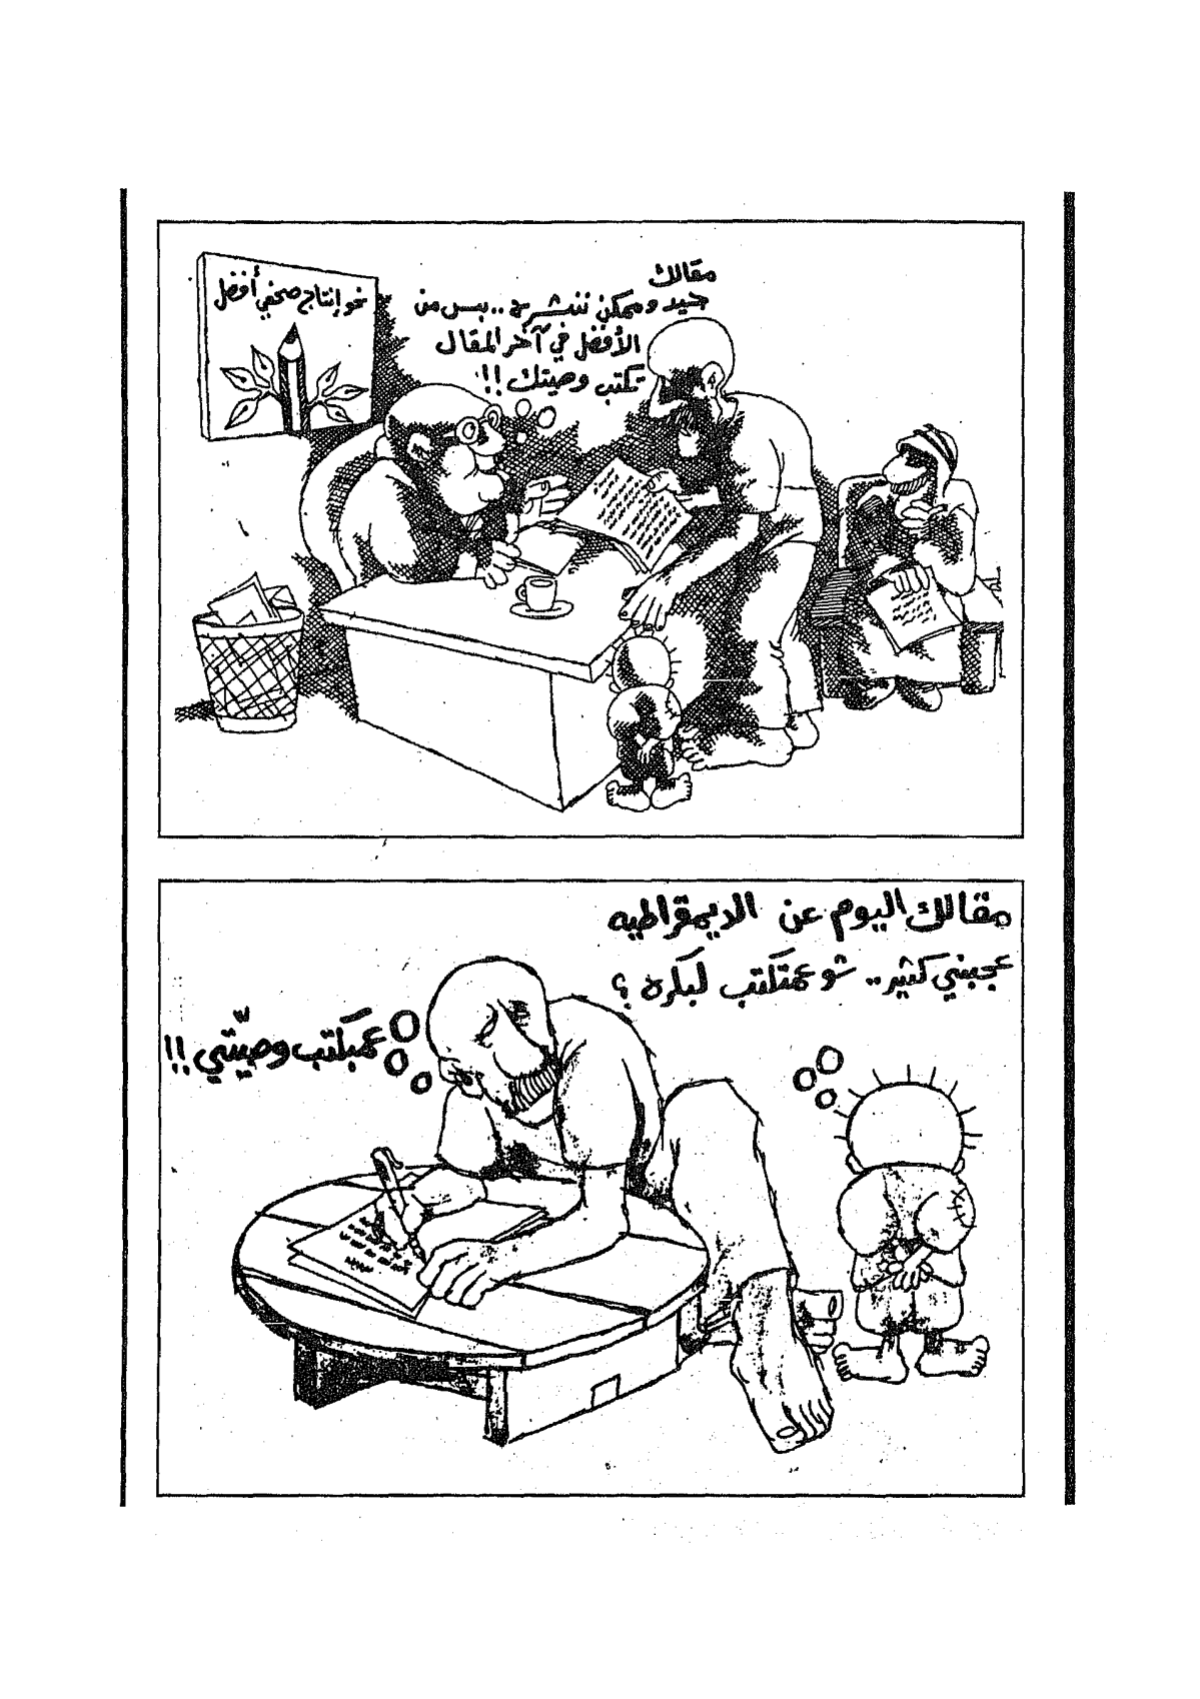 نحو إنتاج صحفي أفضل
مقالك
جيد وممكن ننشره .. بس من
الأفضل في آخر المقال
تكتب وصيتك !!
مقالك اليوم عن الديمقراطيه
عجبني كثير .. شو عمتكتب لبكره ؟
عمبكتب وصيّتي !!